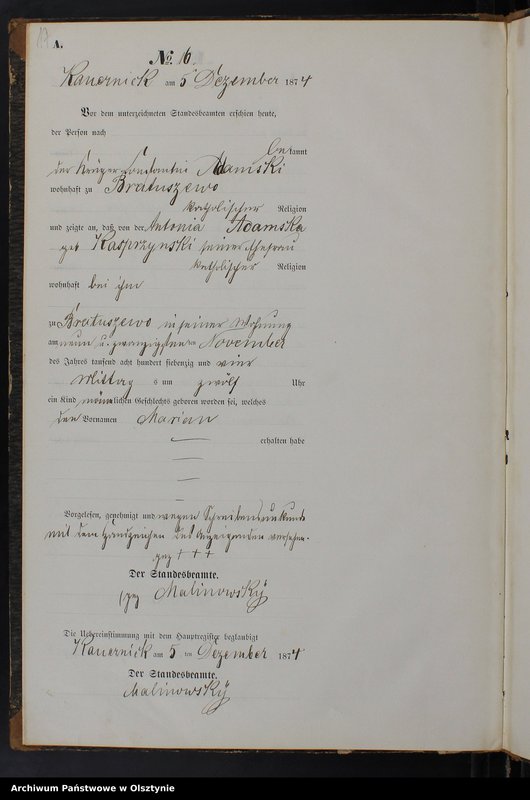 A.
No. 16.
Kauernick am 5 Dezember 1874
Vor dem unterzeichneten Standesbeamten erschien heute,
der Person nach
bekannt
der Krüger Constantin Adamski
wohnhaft zu Bratuszewo
katholischer Religion
und zeigte an, daß von der Antonia Adamska
geb Kasprzynski seiner Ehefrau
katholischer Religion
wohnhaft bei ihm
zu Bratuszewo in seiner Wohnung
am neun u. zwanzigsten ten November
des Jahres tausend acht hundert siebenzig und vier
Mittag s um zwölf Uhr
ein Kind männlichen Geschlechts geboren worden sei, welches
den Vornamen Marian
erhalten habe
Vorgelesen, genehmigt und wegen Schreibensunkunde
mit dem Handzeichen des Anzeigenden versehen.
gez + + +
Der Standesbeamte.
gez Malinowsky
Die Uebereinstimmung mit dem Hauptregister beglaubigt
Kauernick am 5. ten Dezember 1874
Der Standesbeamte.
Malinowsky
Archiwum Państwowe w Olsztynie